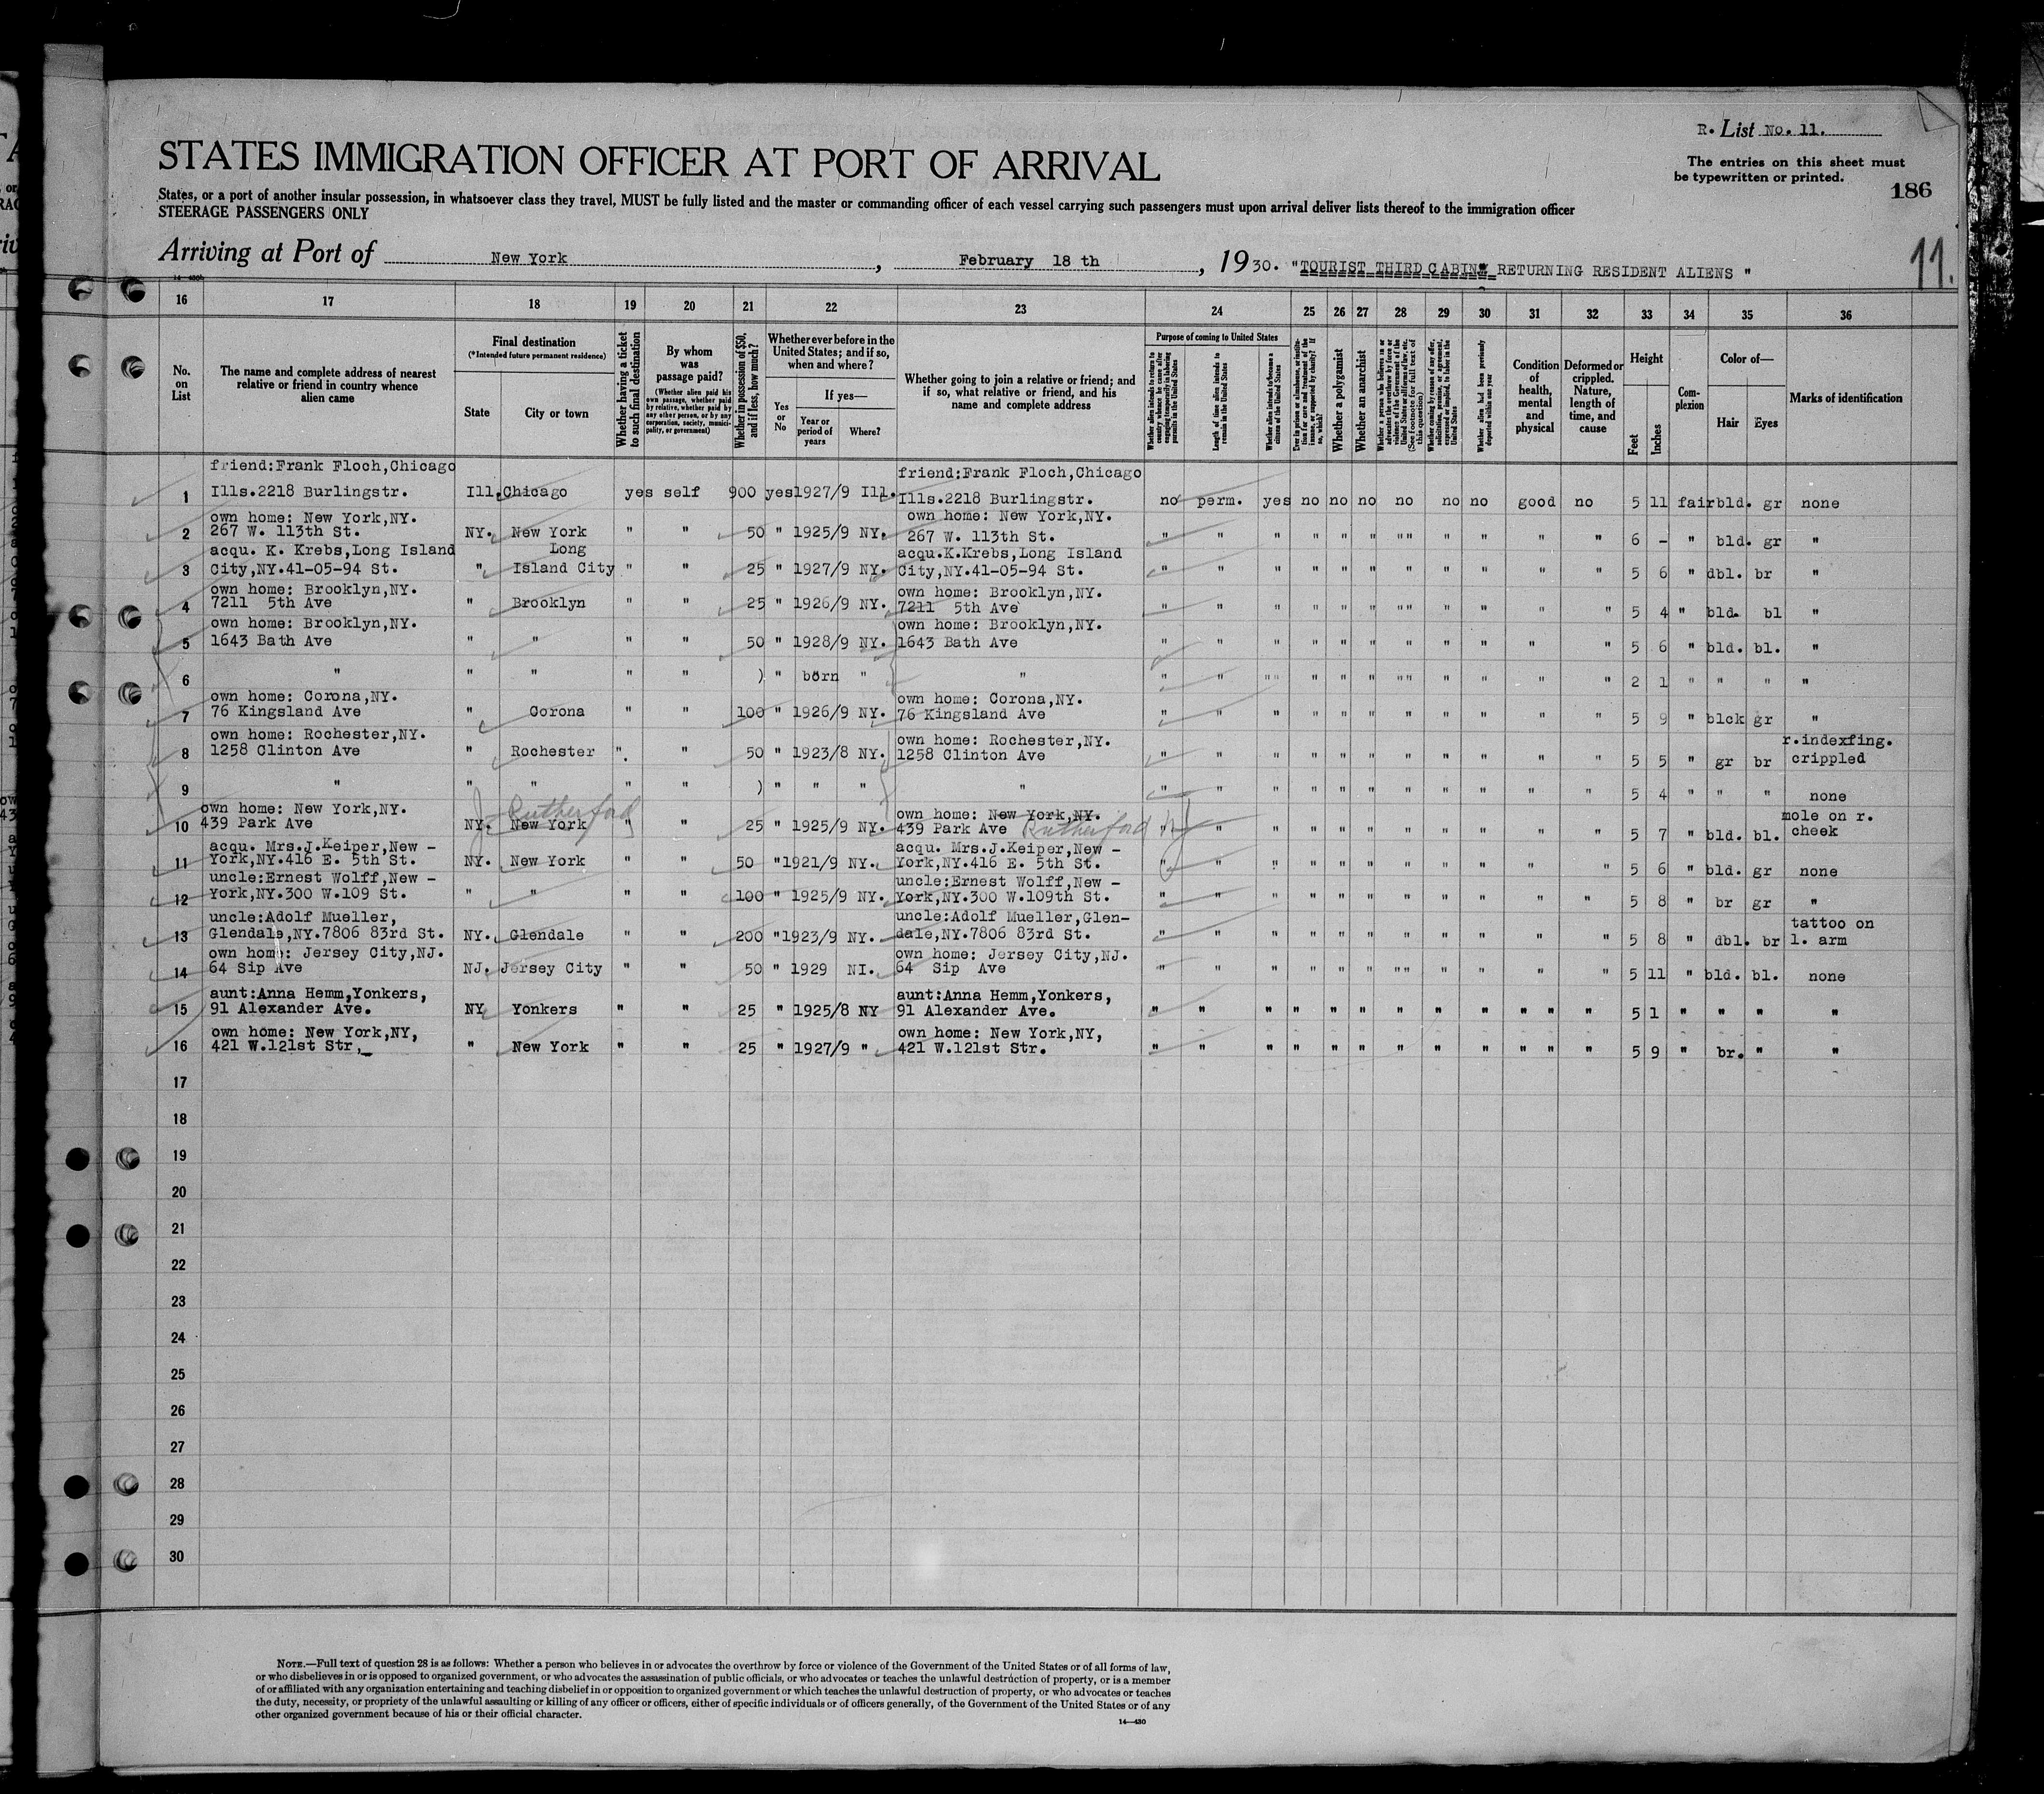 R. List No. 11.
The entries on this sheet must
be typewritten or printed.
186
STATES IMMIGRATION OFFICER AT PORT OF ARRIVAL
States, or a port of another insular possession, in whatsoever class they travel, MUST be fully listed and the master or commanding officer of each vessel carrying such passengers must upon arrival deliver lists thereof to the immigration officer
STEERAGE PASSENGERS ONLY
Arriving at Port of New York, February 18 th, 1930. "TOURIST THIRD CABIN" RETURNING RESIDENT ALIENS "
11.
16 17 18 19 20 21 22 23 24 25 26 27 28 29 30 31 32 33 34 35 36
No. on List
The name and complete address of nearest relative or friend in country whence alien came
Final destination
(*Intended future permanent residence)
State
City or town
Whether having a ticket to such final destination
By whom was passage paid?
(Whether alien paid his own passage, whether paid by relative, whether paid by any other person, or by any corporation, society, municipality, or government)
Whether in possession of $50, and if less, how much?
Whether ever before in the United States; and if so, when and where?
Yes or No
If yes—
Year or period of years
Where?
Whether going to join a relative or friend; and if so, what relative or friend, and his name and complete address
Purpose of coming to United States
Length of time alien intends to remain in the United States
Whether alien intends to become a citizen of the United States
Whether a polygamist
Whether an anarchist
Condition of health, mental and physical
Deformed or crippled. Nature, length of time, and cause
Height
Feet
Inches
Complexion
Color of—
Hair
Eyes
Marks of identification
friend:Frank Floch,Chicago friend:Frank Floch,Chicago
1 Ills.2218 Burlingstr. Ill. Chicago yes self 900 yes 1927/9 Ill. Ills.2218 Burlingstr. no perm. yes no no no no no no good no 5 11 fair bld. gr none
own home: New York,NY. own home: New York,NY.
2 267 W. 113th St. NY. New York " " 50 " 1925/9 NY. 267 W. 113th St. " " " " " " "" " " " " 6 - " bld. gr "
acqu. K. Krebs,Long Island Long acqu.K.Krebs,Long Island
3 City,NY.41-05-94 St. " Island City " " 25 " 1927/9 NY. City,NY.41-05-94 St. " " " " " " " " " " " 5 6 " dbl. br "
own home: Brooklyn,NY. own home: Brooklyn,NY.
4 7211 5th Ave " Brooklyn " " 25 " 1926/9 NY. 7211 5th Ave " " " " " " "" " " " " 5 4 " bld. bl "
own home: Brooklyn,NY. own home: Brooklyn,NY.
5 1643 Bath Ave " " " " 50 " 1928/9 NY. 1643 Bath Ave " " " " " " " " " " " 5 6 " bld. bl. "
6 " " " " " ) " born " " " " "" " " " "" " " " " 2 1 " " " "
own home: Corona,NY. own home: Corona,NY.
7 76 Kingsland Ave " Corona " " 100 " 1926/9 NY. 76 Kingsland Ave " " " " " " " " " " " 5 9 " blck gr "
own home: Rochester,NY. own home: Rochester,NY. r.indexfing.
8 1258 Clinton Ave " Rochester " " 50 " 1923/8 NY. 1258 Clinton Ave " " " " " " " " " " " 5 5 " gr br crippled
9 " " " " " ) " " " " " " " " " " " " " " " 5 4 " " " none
own home: New York,NY. Rutherford own home: New York,NY. mole on r.
10 439 Park Ave NY. New York " " 25 " 1925/9 NY. 439 Park Ave Rutherford NJ " " " " " " " " " " " 5 7 " bld. bl. cheek
acqu. Mrs.J.Keiper,New - acqu. Mrs.J.Keiper,New -
11 York,NY.416 E. 5th St. NY. New York " " 50 " 1921/9 NY. York,NY.416 E. 5th St. " " " " " " " " " " " 5 6 " bld. gr none
uncle:Ernest Wolff,New - uncle:Ernest Wolff,New -
12 York,NY.300 W.109 St. " " " " 100 " 1925/9 NY. York,NY.300 W.109th St. " " " " " " " " " " " 5 8 " br gr "
uncle:Adolf Mueller, uncle:Adolf Mueller,Glen- tattoo on
13 Glendale,NY.7806 83rd St. NY. Glendale " " 200 " 1923/9 NY. dale,NY.7806 83rd St. " " " " " " " " " " " 5 8 " dbl. br l. arm
own home: Jersey City,NJ. own home: Jersey City,NJ.
14 64 Sip Ave NJ. Jersey City " " 50 " 1929 NI. 64 Sip Ave " " " " " " "" " " " " 5 11 " bld. bl. none
aunt:Anna Hemm,Yonkers, aunt:Anna Hemm,Yonkers,
15 91 Alexander Ave. NY Yonkers " " 25 " 1925/8 NY 91 Alexander Ave. " " " " " " " " " " " " 5 1 " " " "
own home: New York,NY, own home: New York,NY,
16 421 W.121st Str, " New York " " 25 " 1927/9 " 421 W.121st Str. " " " " " " " " " " " " 5 9 " br. " "
17
18
19
20
21
22
23
24
25
26
27
28
29
30
NOTE.—Full text of question 28 is as follows: Whether a person who believes in or advocates the overthrow by force or violence of the Government of the United States or of all forms of law,
or who disbelieves in or is opposed to organized government, or who advocates the assassination of public officials, or who advocates or teaches the unlawful destruction of property, or is a member
of or affiliated with any organization entertaining and teaching disbelief in or opposition to organized government or which teaches the unlawful destruction of property, or who advocates or teaches
the duty, necessity, or propriety of the unlawful assaulting or killing of any officer or officers, either of specific individuals or of officers generally, of the Government of the United States or of any
other organized government because of his or their official character.
14—430